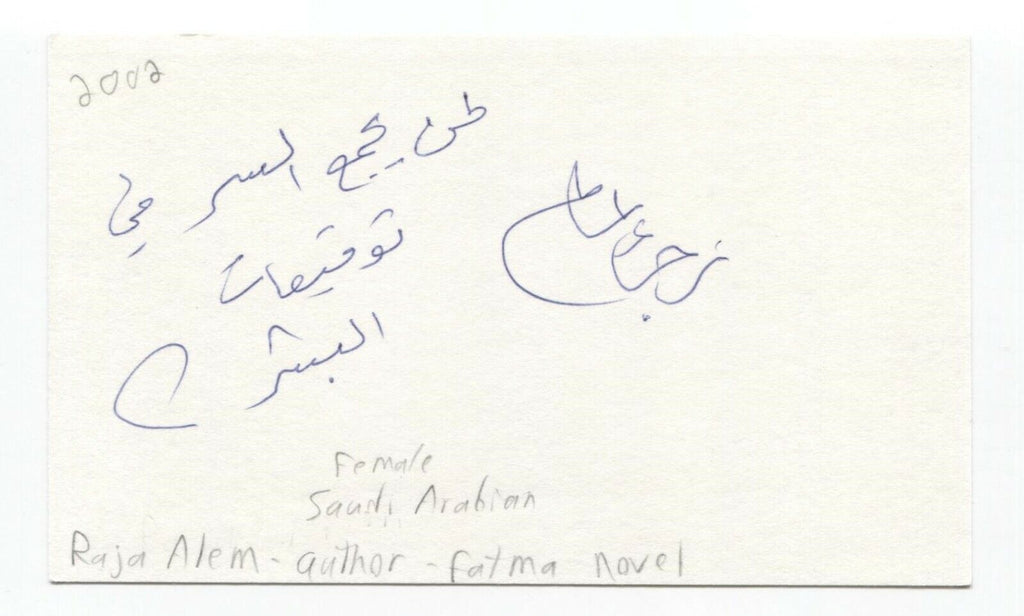 2002
لمن يجمع السر في
توقيعات
البشر
Female
Saudi Arabian
Raja Alem - author - Fatma novel